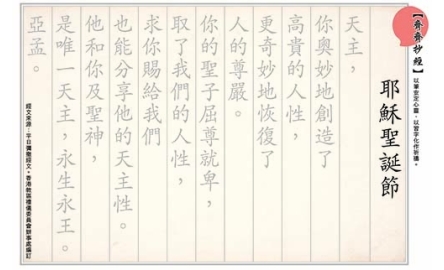 【齊齊抄經】
以筆墨定心靈，以習字化作祈禱。
耶穌聖誕節
天主，
你奧妙地創造了
高貴的人性，
更奇妙地恢復了
人的尊嚴。
你的聖子屈尊就卑，
取了我們的人性，
求你賜給我們
也能分享他的天主性。
他和你及聖神，
是唯一天主，永生永王。
亞孟。
經文來源：平日彌撒經文，香港教區禮儀委員會辦事處編訂